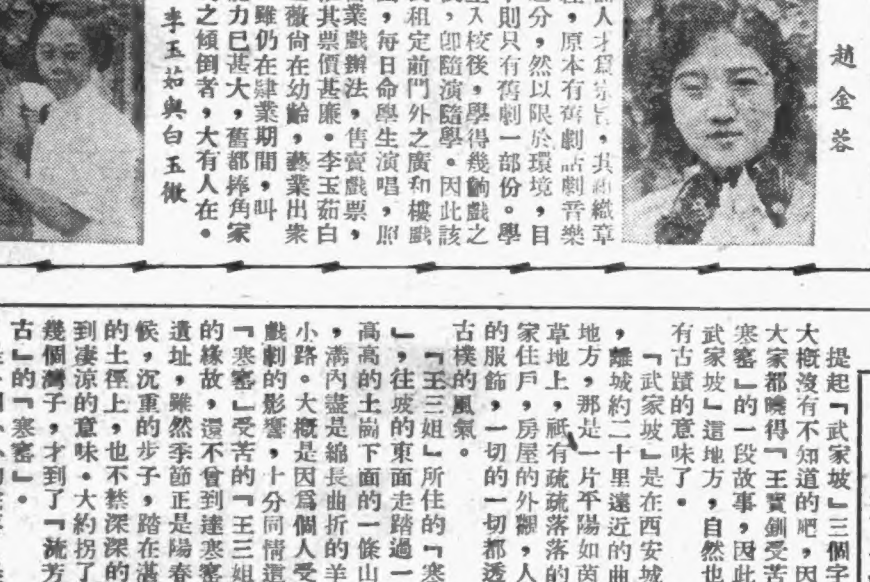 趙金蓉
人才爲宗旨，其組織章
，原本有舊劇話劇音樂
之分，然以限於環境，目
則只有舊劇一部份。學
入校後，學得幾齣戲之
，卽隨演隨學。因此該
租定前門外之廣和樓戲
，每日命學生演唱，照
業戲辦法，售賣戲票，
其票價甚廉。李玉茹白
薇尙在幼齡，藝業出衆
雖仍在肄業期間，叫
力已甚大，舊都捧角家
之傾倒者，大有人在。
李玉茹與白玉薇
提起『武家坡』三個字
大槪沒有不知道的吧，因
大家都曉得『王寶釧受苦
寒窰』的一段故事，因此
武家坡』這地方，自然也
有古蹟的意味了。
『武家坡』是在西安城
，離城約二十里遠近的曲
地方，那是一片平陽如茵
草地上，祇有疏疏落落的
家住戶，房屋的外觀，人
的服飾，一切的一切都透
古樸的風氣。
『王三姐』所住的『寒
』，往坡的東面走踏過一
高高的土崗下面的一條山
，溝內盡是綿長曲折的羊
小路。大槪是因爲個人受
戲劇的影響，十分同情這
『寒窰』受苦的『王三姐
的緣故，還不曾到達寒窰
遺址，雖然季節正是陽春
候，沉重的步子，踏在湛
的土徑上，也不禁深深的
到凄涼的意味。大約拐了
幾個灣子，才到了『流芳
古』的『寒窰』。